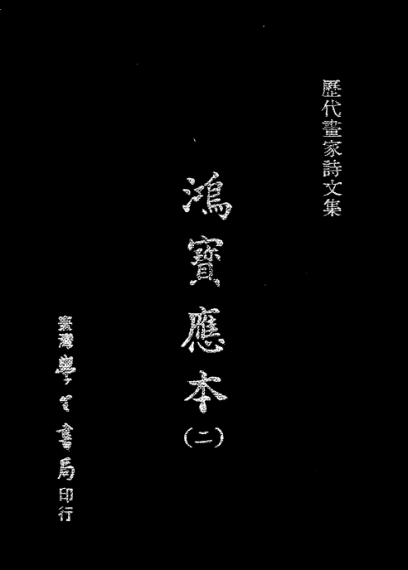 歷代畫家詩文集
鴻寶應本
(二)
臺灣學生書局印行